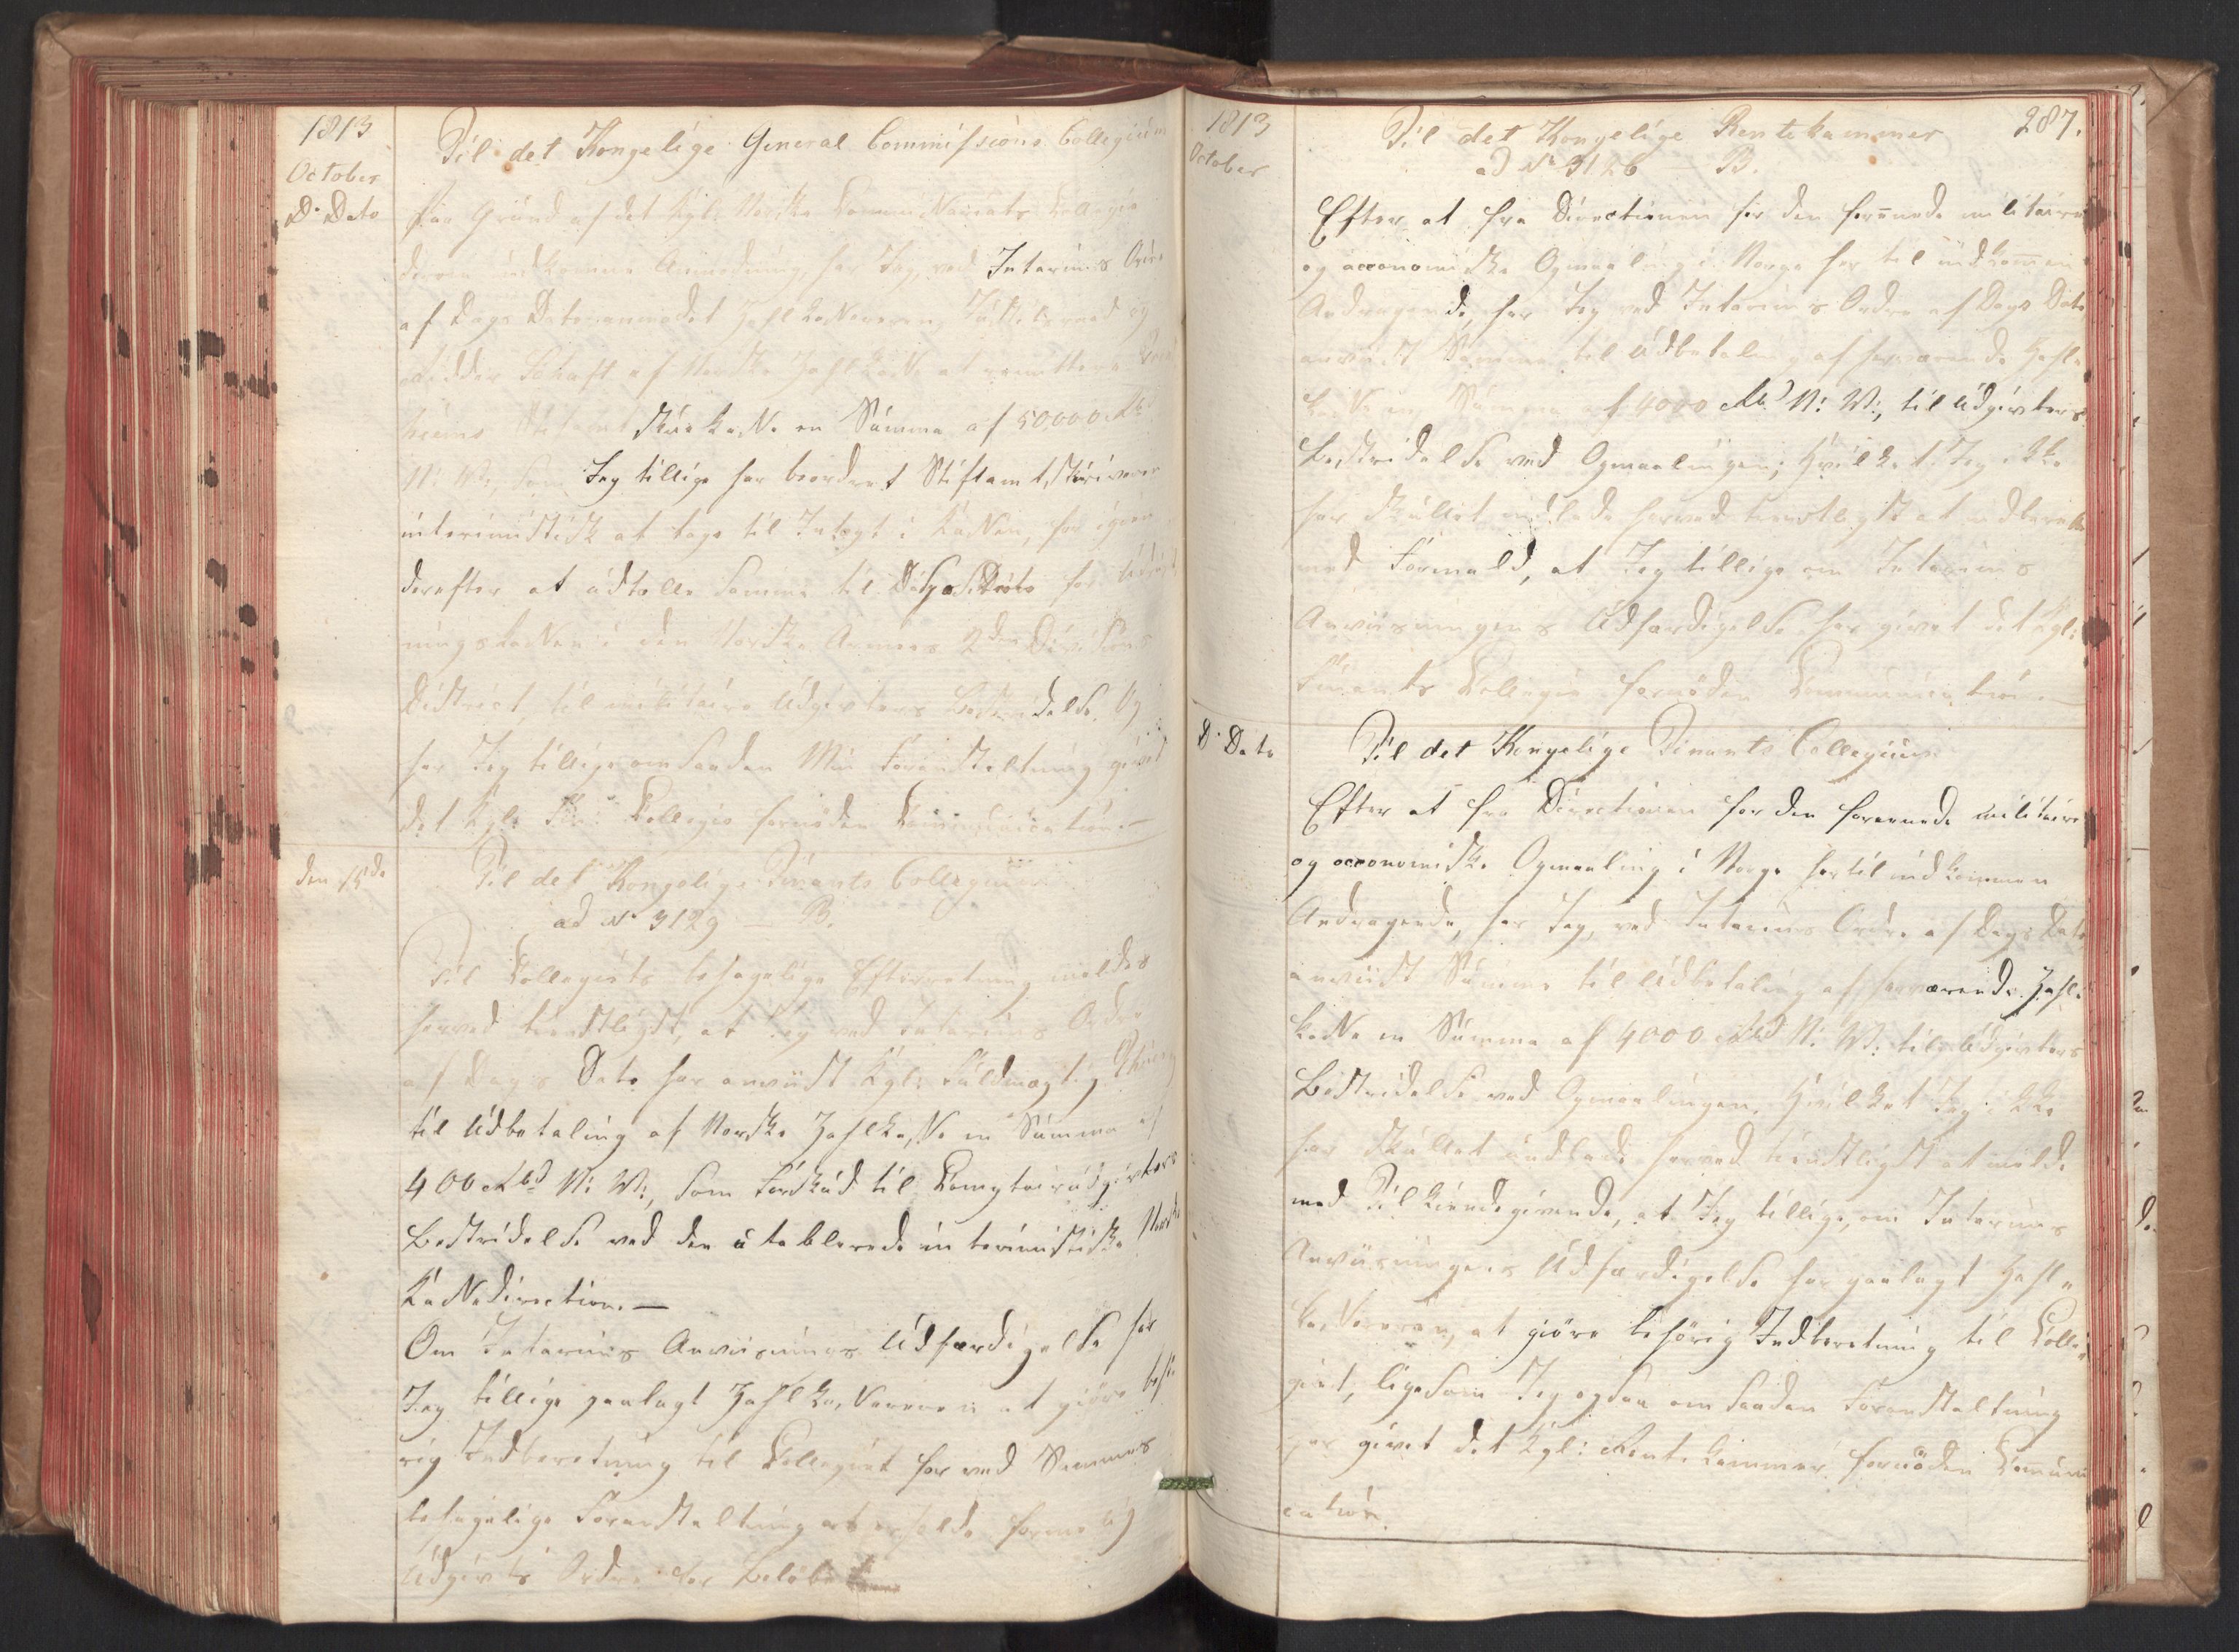 1813
October
D. Dato
Til det Kongelige General Commissions Collegium
Paa Grund af det Kgl: Norske Commissariats Collegio
derom indkomne Anmodning, har Jeg, ved Interims Ordre
af Dags Dato anmodet Zahlkasereren, Justitsraad og
Ridder Schaft af Norske Zahlkasse at remittere
Stiftamtstuekasse en Summa af 50,000 Rbd
N: V:, som Jeg tillige har beordret Stiftamtskriveren
interimistisk at tage til Indtægt i Kassen, for igien
derefter at udtælle samme til Disposition for
ningskassen i den Norske Armees 2den Divisions
District, til militaire Udgivters Bestridelse. Og
har Jeg tillige om saadan Min Foranstaltning givet
det Kgl: Fin: Collegio fornøden Communication.—
den 15de
Til det Kongelige Finants Collegium
ad No 3129 B.
Til Collegiets behagelige Efterretning meldes
herved tienstligst, at Jeg ved Interims Ordre
af Dags Dato har anviist Kgl: Fuldmægtig
til Udbetaling af Norske Zahlkasse en Summa af
400 Rbd N: V:, som Forskud til Comptoirudgivters
Bestridelse ved den etablerede interimistiske Norske
Kassedirection.—
Om Interims Anviisnings Udfærdigelse har
Jeg tillige paalagt Zahlkassereren at giøre behø-
rig Indberetning til Collegiet for ved Sammes
behagelige Foranstaltning at erholde formelig
Udgivts Ordre for Beløbet
1813
October
287.
Til det Kongelige Rentekammer
ad No 3126 B.
Efter at fra Directionen for den forenede militaire
og oeconomiske Opmaaling i Norge her til indkommen
Andragende, har Jeg ved Interims Ordre af Dags Dato
anviist Samme til Udbetaling af herværende Zahl-
kasse en Summa af 4000 Rbd N: V:, til Udgivters
Bestridelse ved Opmaalingen; Hvilket Jeg ikke
har skullet undlade herved tienstligst at indberette
med Formeld, at Jeg tillige om Interims
Anviisningens Udfærdigelse har givet det Kgl:
Finants Collegio fornøden Communication
D. Dato
Til det Kongelige Finants Collegium
Efter at fra Directionen for den forenede militaire
og oeconomiske Opmaaling i Norge hertil indkommen
Andragende, har Jeg, ved Interims Ordre af Dags Dato
anviist Samme til Udbetaling af herværende Zahl-
kasse en Summa af 4000 Rbd N: V: til Udgivters
Bestridelse ved Opmaalingen, Hvilket Jeg ikke
har skullet undlade herved tienstligst at melde
med Tilkiendegivende, at Jeg tillige, om Interims
Anviisningens Udfærdigelse har paalagt Zahl-
kassereren, at giøre behørig Indberetning til Colle-
giet, ligesom Jeg ogsaa om saadan Foranstaltning
har givet det Kgl: Rentekammer fornøden Communi
cation.